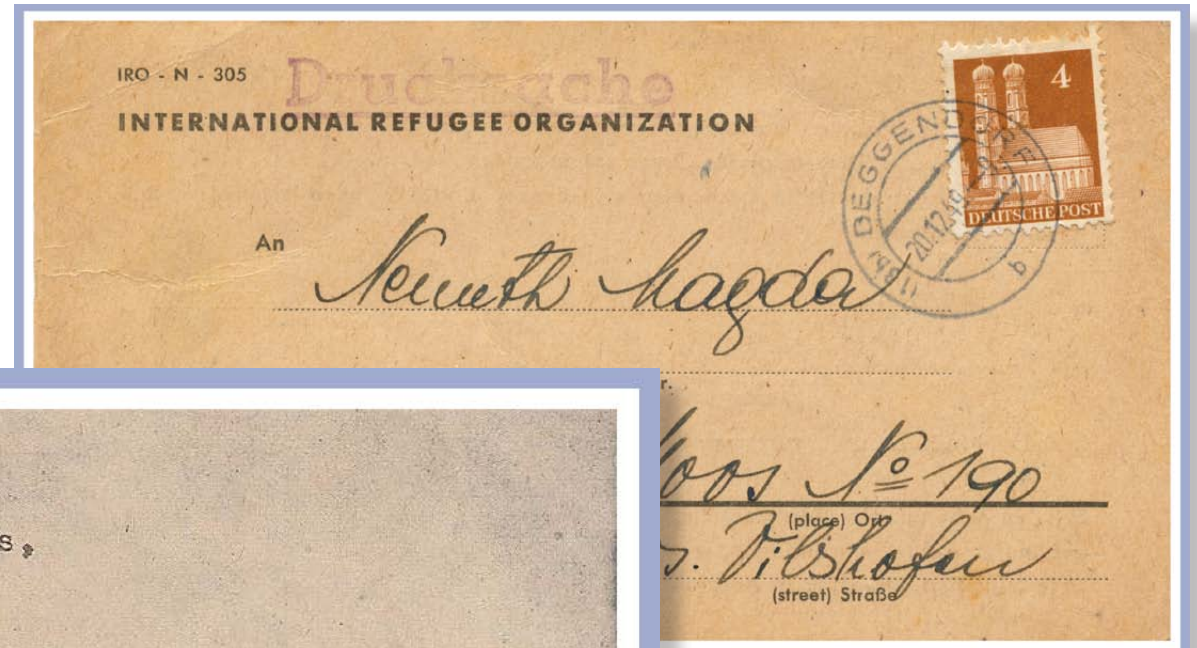 IRO - N - 305
Drucksache
INTERNATIONAL REFUGEE ORGANIZATION
4
DEUTSCHE POST
DEGGENDORF
20.12.49
b
An
Nemeth Magda
r.
Moos № 190
(place) Ort
s. Vilshofen
(street) Straße
s.